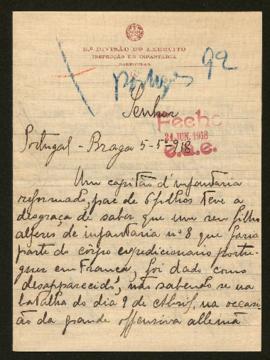 8.ª DIVISÃO DO EXERCITO
INSPECÇÃO DE INFANTARIA
92
Senhor
24 JUN. 1918
Portugal - Braga 5-5-918
Um capitão d'infantaria
reformado, pae de 6 filhos teve a
desgraça de saber que um seu filho
alferes de infantaria nº 8 que fazia
parte do côrpo expedicionario portu-
guez em França, foi dado como
"desaparecido", não sabendo se na
batalha do dia 9 de Abril, na occa-
sião da grande offensiva allemã